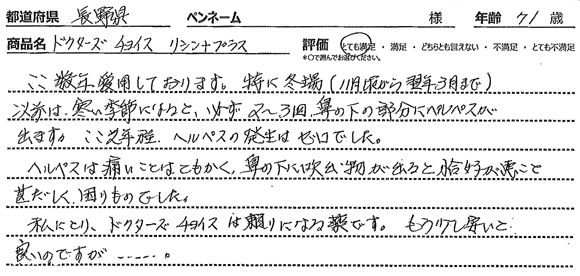 都道府県 長野県 ペンネーム 様 年齢 71 歳
商品名 ドクターズ チョイス リシン+プラス 評価 とても満足 ・ 満足 ・ どちらとも言えない ・ 不満足 ・ とても不満足
*○で囲んでお選びください。
ここ数年愛用しております。特に冬場(11月頃から翌年3月まで)
以前は、寒い季節になると、必ず2〜3回、鼻の下の部分にヘルペスが
出ますが ここ2年程、ヘルペスの発生はゼロでした。
ヘルペスは痛いことはともかく、鼻の下に吹出物が出ると恰好が悪こと
甚だしく困りものでした。
私にとり、ドクターズ チョイスは頼りになる薬です。もう少し安いと
良いのですが ーーーー。